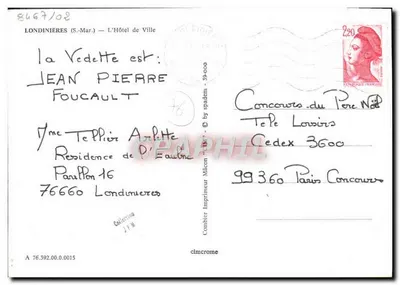 8467/02
LONDINIÈRES (S.-Mar.) — L'Hôtel de Ville
2,20
La Vedette est :
JEAN PIERRE
FOUCAULT
Mme Tellier Arlette
Residence de D'Eaulne
Pavillon 16
76660 Londinieres
Concours du Pere Noël
Tele Loisirs
Cedex 3600
99360 Paris Concours
Combier Imprimeur Mâcon
© by spadem
CPAPHIL
A 76.392.00.0.0015
cimcrome